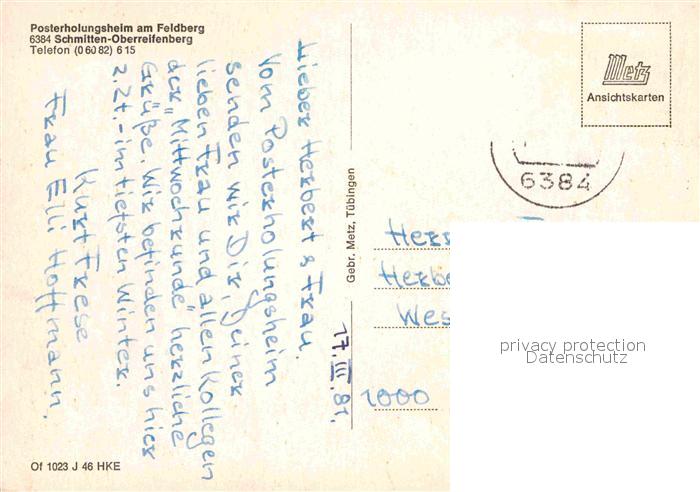 Posterholungsheim am Feldberg
6384 Schmitten-Oberreifenberg
Telefon (0 60 82) 6 15
Metz
Ansichtskarten
6384
17.III.81.
Lieber Herbert & Frau.
Vom Posterholungsheim
senden wir Dir, Deiner
lieben Frau und allen Kollegen
der „Mittwochrunde" herzliche
Grüße. Wir befinden uns hier
z.Zt. - im tiefsten Winter.
Kurt Frese
Frau Elli Hoffmann.
Gebr. Metz, Tübingen
Herr
Herbe
Wes
1000
privacy protection
Datenschutz
Of 1023 J 46 HKE